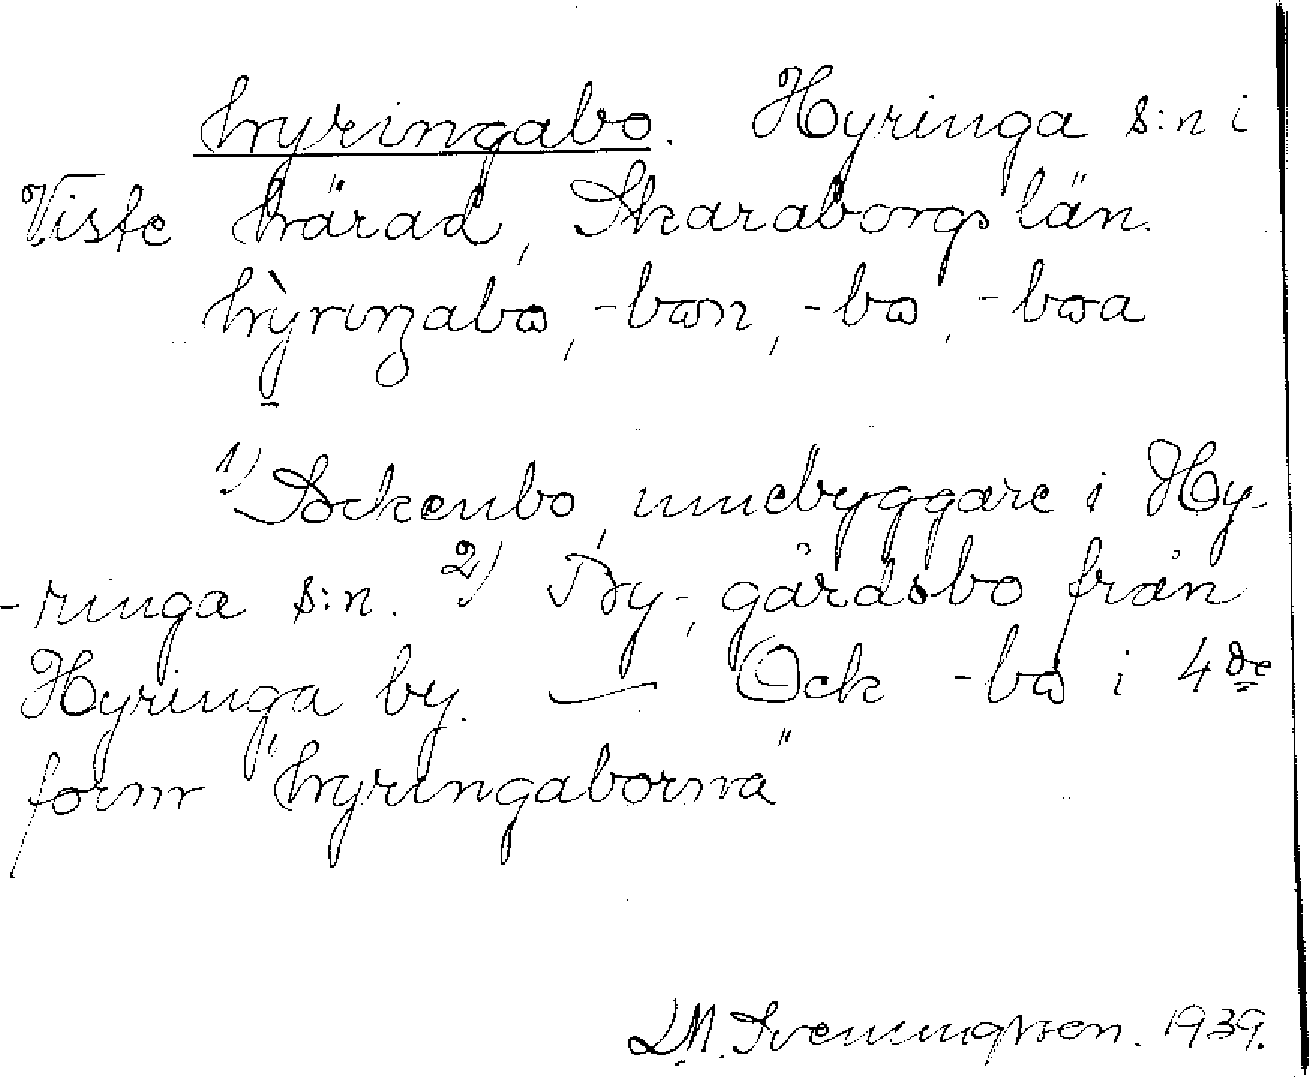 hyringabo. Hyringa s:n i
Viste härad, Skaraborgs län.
hỳrıŋabω, -bωn, -bω, -bωa
1) Sockenbo, innebyggare i Hy-
-ringa s:n. 2) By-, gårdsbo från
Hyringa by. — Ock -bω i 4de
form "hyringaborna"
L.M. Svenungsson. 1939.